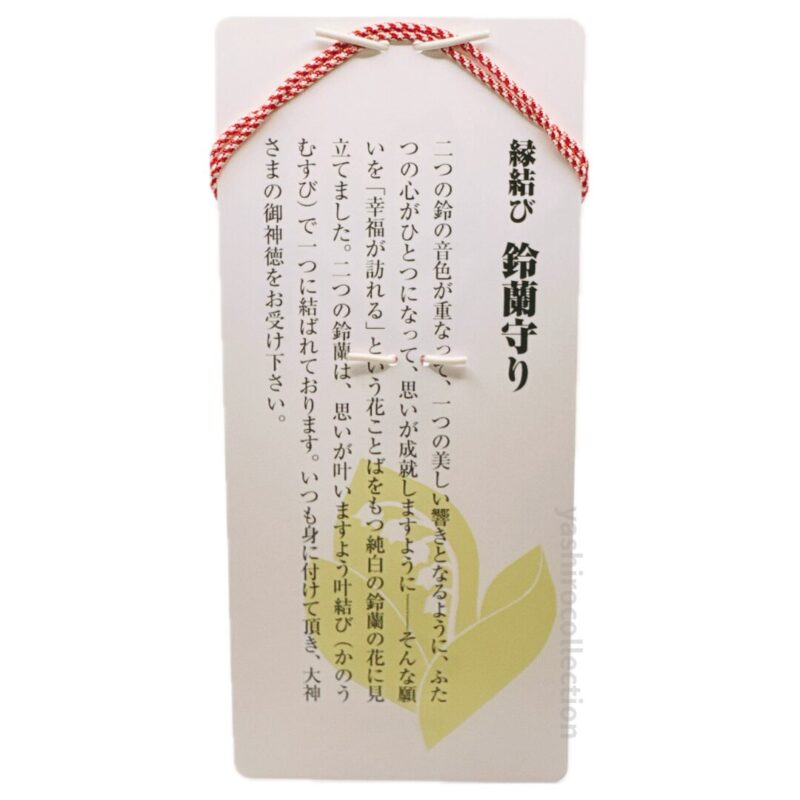 縁結び 鈴蘭守り
二つの鈴の音色が重なって、一つの美しい響きとなるように、ふた
つの心がひとつになって、思いが成就しますように――そんな願
いを「幸福が訪れる」という花ことばをもつ純白の鈴蘭の花に見
立てました。二つの鈴蘭は、思いが叶いますよう叶結び（かのう
むすび）で一つに結ばれております。いつも身に付けて頂き、大神
さまの御神徳をお受け下さい。
yashirocollection